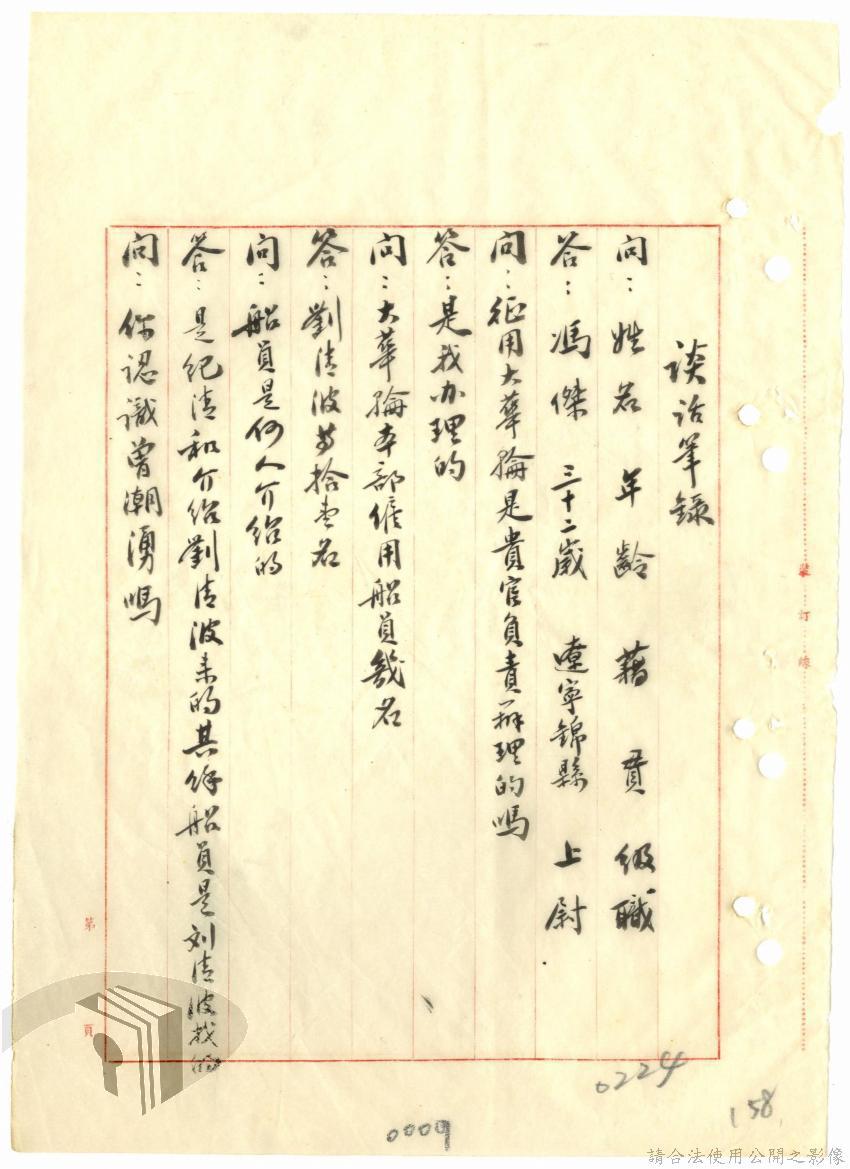 談話筆錄
問：姓名 年齡 藉貫 級職
答：馮傑 三十二歲 遼寧錦縣 上尉
問：征用大華輪是貴官負責辦理的嗎
答：是我办理的
問：大華輪本部僱用船員幾名
答：劉清波等拾壹名
問：船員是何人介紹的
答：是紀清和介紹劉清波來的其餘船員是刘清波找的
問：你認識曾潮湧嗎
裝訂線
第 頁
0224
158
0009
請合法使用公開之影像